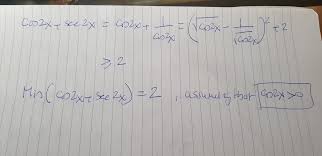 cos2x + sec2x = cos2x + 1/cos2x = (√cos2x - 1/√cos2x)² + 2
⩾ 2
Min(cos2x + sec2x) = 2 , assuming that cos2x > 0